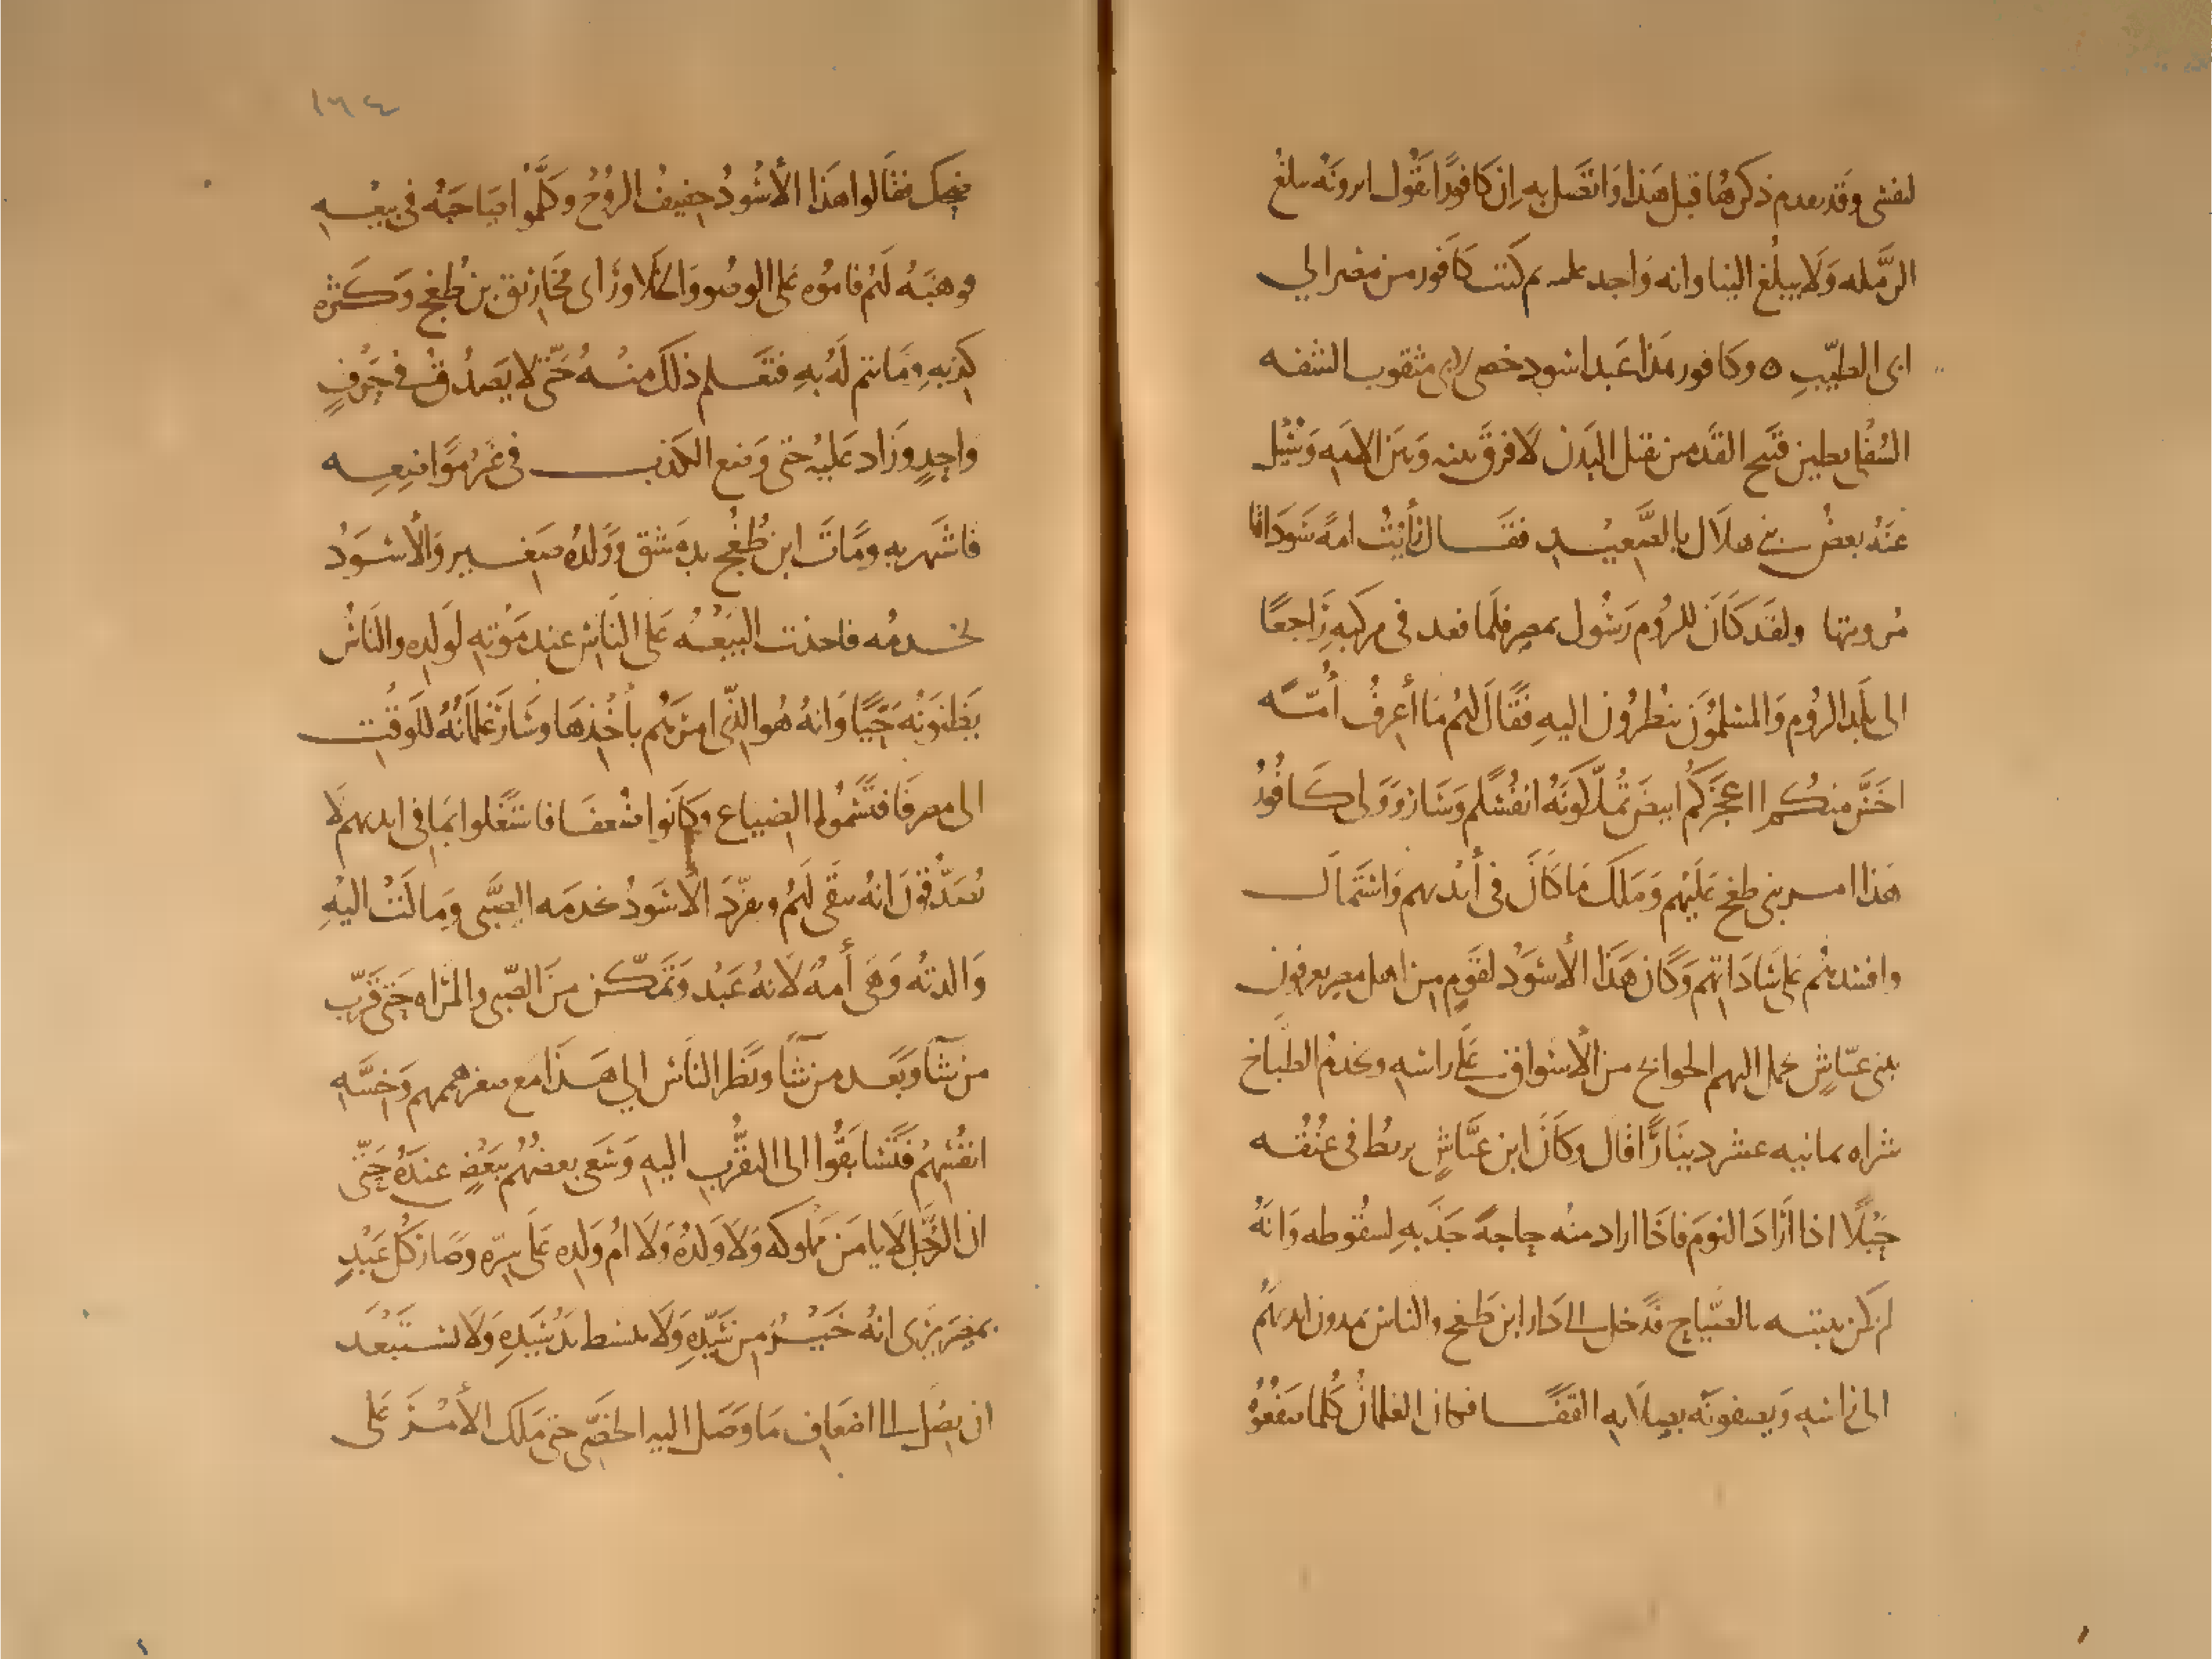 لنفسى وقد تقدم ذكرها قبل هذا واتصل به ان كافورا يقول اترونه يبلغ
الرمله ولا يبلغ الينا وانه واجد عليه ثم كتب كافور من مصر الي
ابى الطيب ه وكافور هذا عبد اسود خصى لابى مثقوب الشفه
السفلى بطين قبيح القدمين ثقيل البدن لا فرق بينه وبين الامه وسئل
عنه بعض بنى هلال بالصعيد فقال رأيت امة سوداء
ولقد كان للروم رسول بمصر فلما قعد فى مركبه راجعا
الى بلد الروم والمسلمون ينظرون اليه فقال لهم ما أعرف أمه
اخس منكم اعجزكم ابيض تملكونه انفسكم وسار وولى كافور
هذا امر بنى طغج عليهم وملك ما كان فى أيديهم واستمال
وافسدهم على ساداتهم وكان هذا الأسود لقوم من اهل مصر يعرفون
ببنى عياش يحمل اليهم الحوائج من الأسواق على راسه ويخدم الطباخ
شراه بمانيه عشر دينارا قال وكان ابن عياش يربط فى عنقه
حبلا اذا اراد النوم فاذا اراد منه حاجة جذبه لسقوطه وانه
لم يكن ينتبه بالصياح فدخل الى دار ابن طغج والناس يمدون ايديهم
الى راسه ويصفونه بصلابه القفا فكان الغلمان كلما صفعوه
١٦٤
ضحك فقالوا هذا الأسود خفيف الروح وكلموا صاحبه فى بيعه
فوهبه لهم فاقاموه على الوضوء والخلا وراى مخاريق بن طغج وكثره
كذبه وما يتم له به فتعلم ذلك منه حتى لا يصدق فى حرف
واحد وزاد عليه حتى وضع الكذب فى غير مواضعه
فاشتهر به ومات ابن طغج بدمشق وولده صغير والأسود
يخدمه فاخذت البيعه على الناس عند موته لولده والناس
يظنونه حيا وانه هو الذى امرهم باخذها وسار غلمانه للوقت
الى مصر فاقتسموا الضياع وكانوا ضعفا فاشتغلوا بما فى ايديهم لا
يصدقون انه يبقى لهم وتفرد الأسود بخدمه الصبى ومالت اليه
والدته وهى أمه لانه عبد وتمكن من الصبى والمراه حتى قرب
من شآ وبعد من شآ ونظر الناس الي هذا مع صغر هممهم وخسه
انفسهم فتسابقوا الى التقرب اليه وسعى بعضهم ببعض عنده حتى
ان الرجل لا يامن مملوكه ولا ولده ولا ام ولده على سره وصار كل عبد
بمصر يرى انه خير من سيده ولا يبسط يد سيده ولا يستبعد
ان يصل الى اضعاف ما وصل اليه الخصى حتى ملك الأمر على